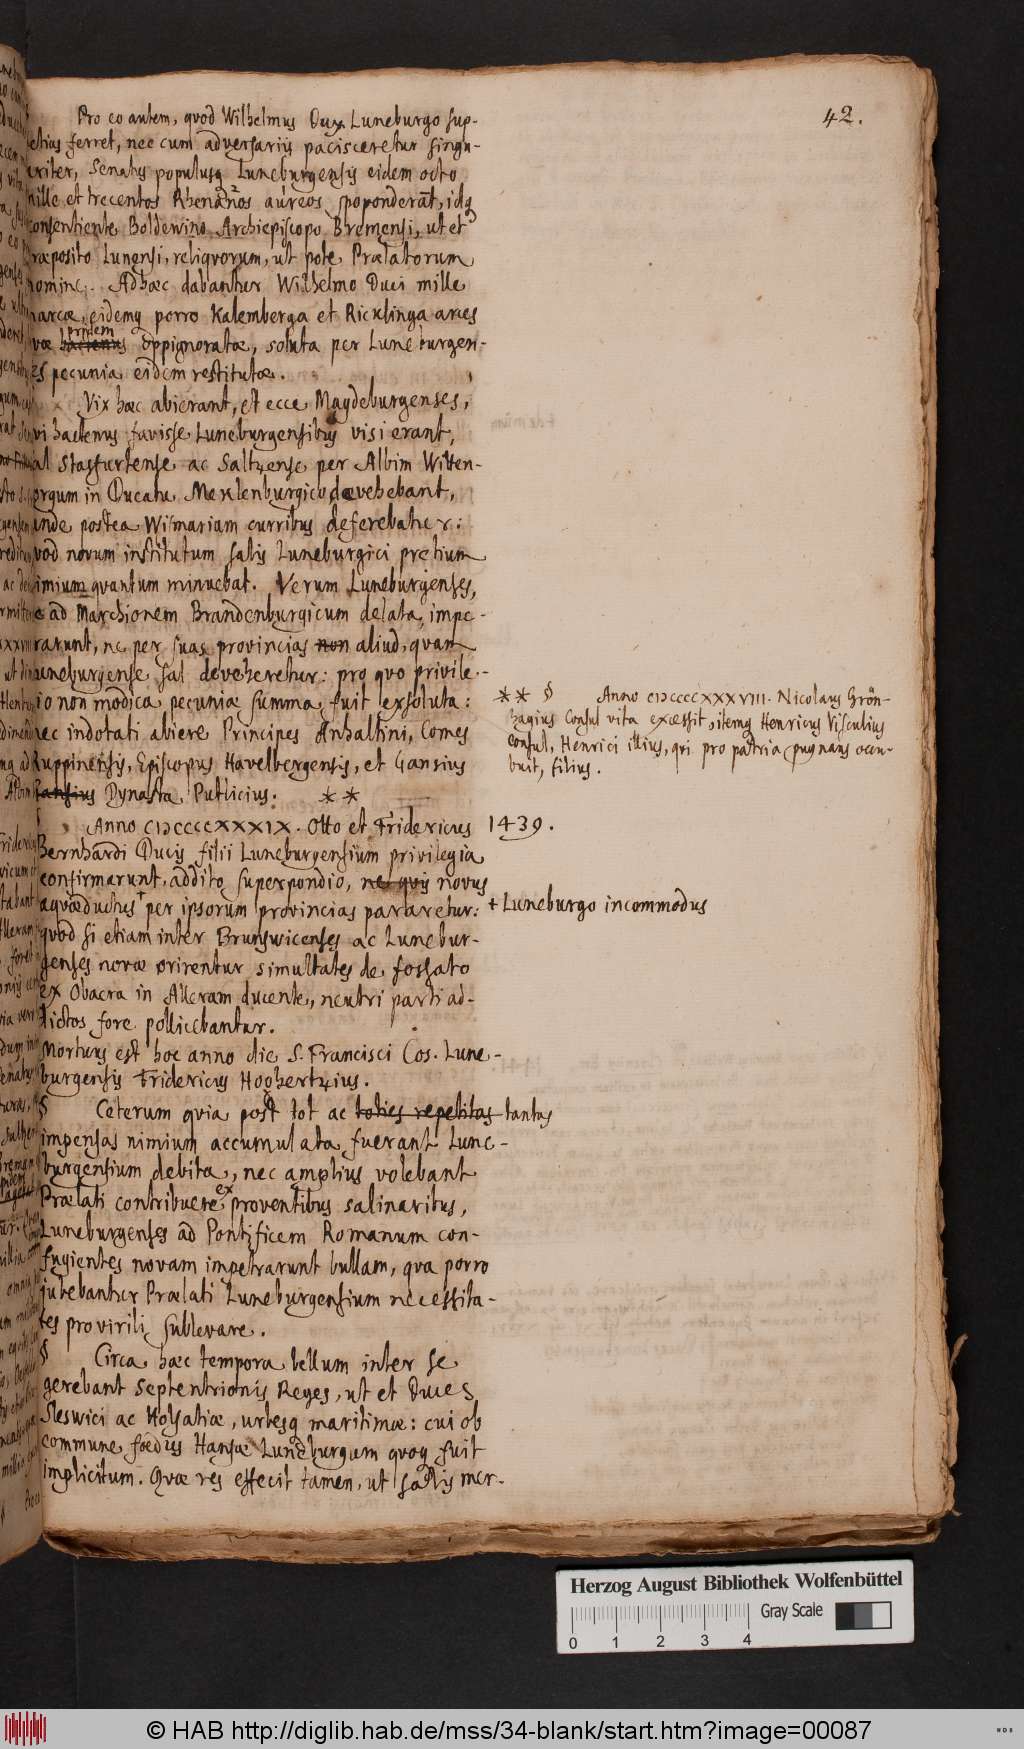 42.
Pro eo autem, quod Wilhelmus Dux Luneburgo sup-
etius ferret, nec cum adversariis pacisceretur singu-
ariter, Senatus populusq Luneburgensis eidem octo
mille et trecentos Rhenanos aureos spoponderat, idq
consentiente Boldewino Archiepiscopo Bremensi, ut et
ræposito Lunensi, reliquorum, ut pote Prælatorum
nomine. Ad hæc dabantur Wilhelmo Duci mille
marcæ, eidemq porro Kalemberga et Ricklinga arces
væ hactenus pridem oppignoratæ, soluta per Luneburgen-
es pecunia eidem restitutæ.
Vix hæc abierant, et ecce Magdeburgenses,
vi hactenus favisse Luneburgensibus visi erant,
al Stasfurtense ac Saltzense per Albim Witten-
ergum in Ducatu Meklenburgico devehebant,
unde postea Wismariam curribus deferebatur:
vod novum institutum salis Luneburgici pretium
imium quantum minuebat. Verum Luneburgenses,
e ad Marchionem Brandenburgicum delata, impe-
rarunt, ne per suas provincias non aliud, quam
uneburgense sal deveheretur: pro quo privile-
io non modica pecuniæ summa fuit exsoluta:
ec indotati abiere Principes Anhaltini, Comes
Ruppinensis, Episcopus Havelbergensis, et Gansius
Gansius Dynasta Putlicius. **
** § Anno CIↃCCCCXXXVIII. Nicolaus Grön-
hagius Consul vita excessit, itemq Henricus Visculius
Consul, Henrici illius, qui pro patria pugnans occu-
buit, filius.
Anno CIↃCCCCXXXIX. Otto et Fridericus
1439.
Bernhardi Ducis filii Luneburgensium privilegia
confirmarunt, addito superpondio, ne quis novus
aquæductus + per ipsorum provincias pararetur:
+ Luneburgo incommodus
quod si etiam inter Brunswicenses ac Lunebur-
genses novæ orirentur simultates de fossato
ex Obacra in Alleram ducente, neutri parti ad-
dictos fore pollicebantur.
Mortuus est hoc anno die S. Francisci Cos. Lune-
burgensis Fridericus Hoghertzius.
§ Ceterum quia post tot ac toties repetitas tantas
impensas nimium accumulata fuerant Lune-
burgensium debita, nec amplius volebant
Prælati contribuere ex proventibus salinaribus,
Luneburgenses ad Pontificem Romanum con-
fugientes novam impetrarunt bullam, qua porro
jubebantur Prælati Luneburgensium necessita-
tes pro virili sublevare.
§ Circa hæc tempora bellum inter se
gerebant Septentrionis Reges, ut et Duces
Sleswici ac Holsatiæ, urbesq maritimæ: cui ob
commune foedus Hansæ Luneburgum quoq fuit
implicitum. Quæ res effecit tamen, ut salis mer-
Herzog August Bibliothek Wolfenbüttel
Gray Scale
0 1 2 3 4
© HAB http://diglib.hab.de/mss/34-blank/start.htm?image=00087